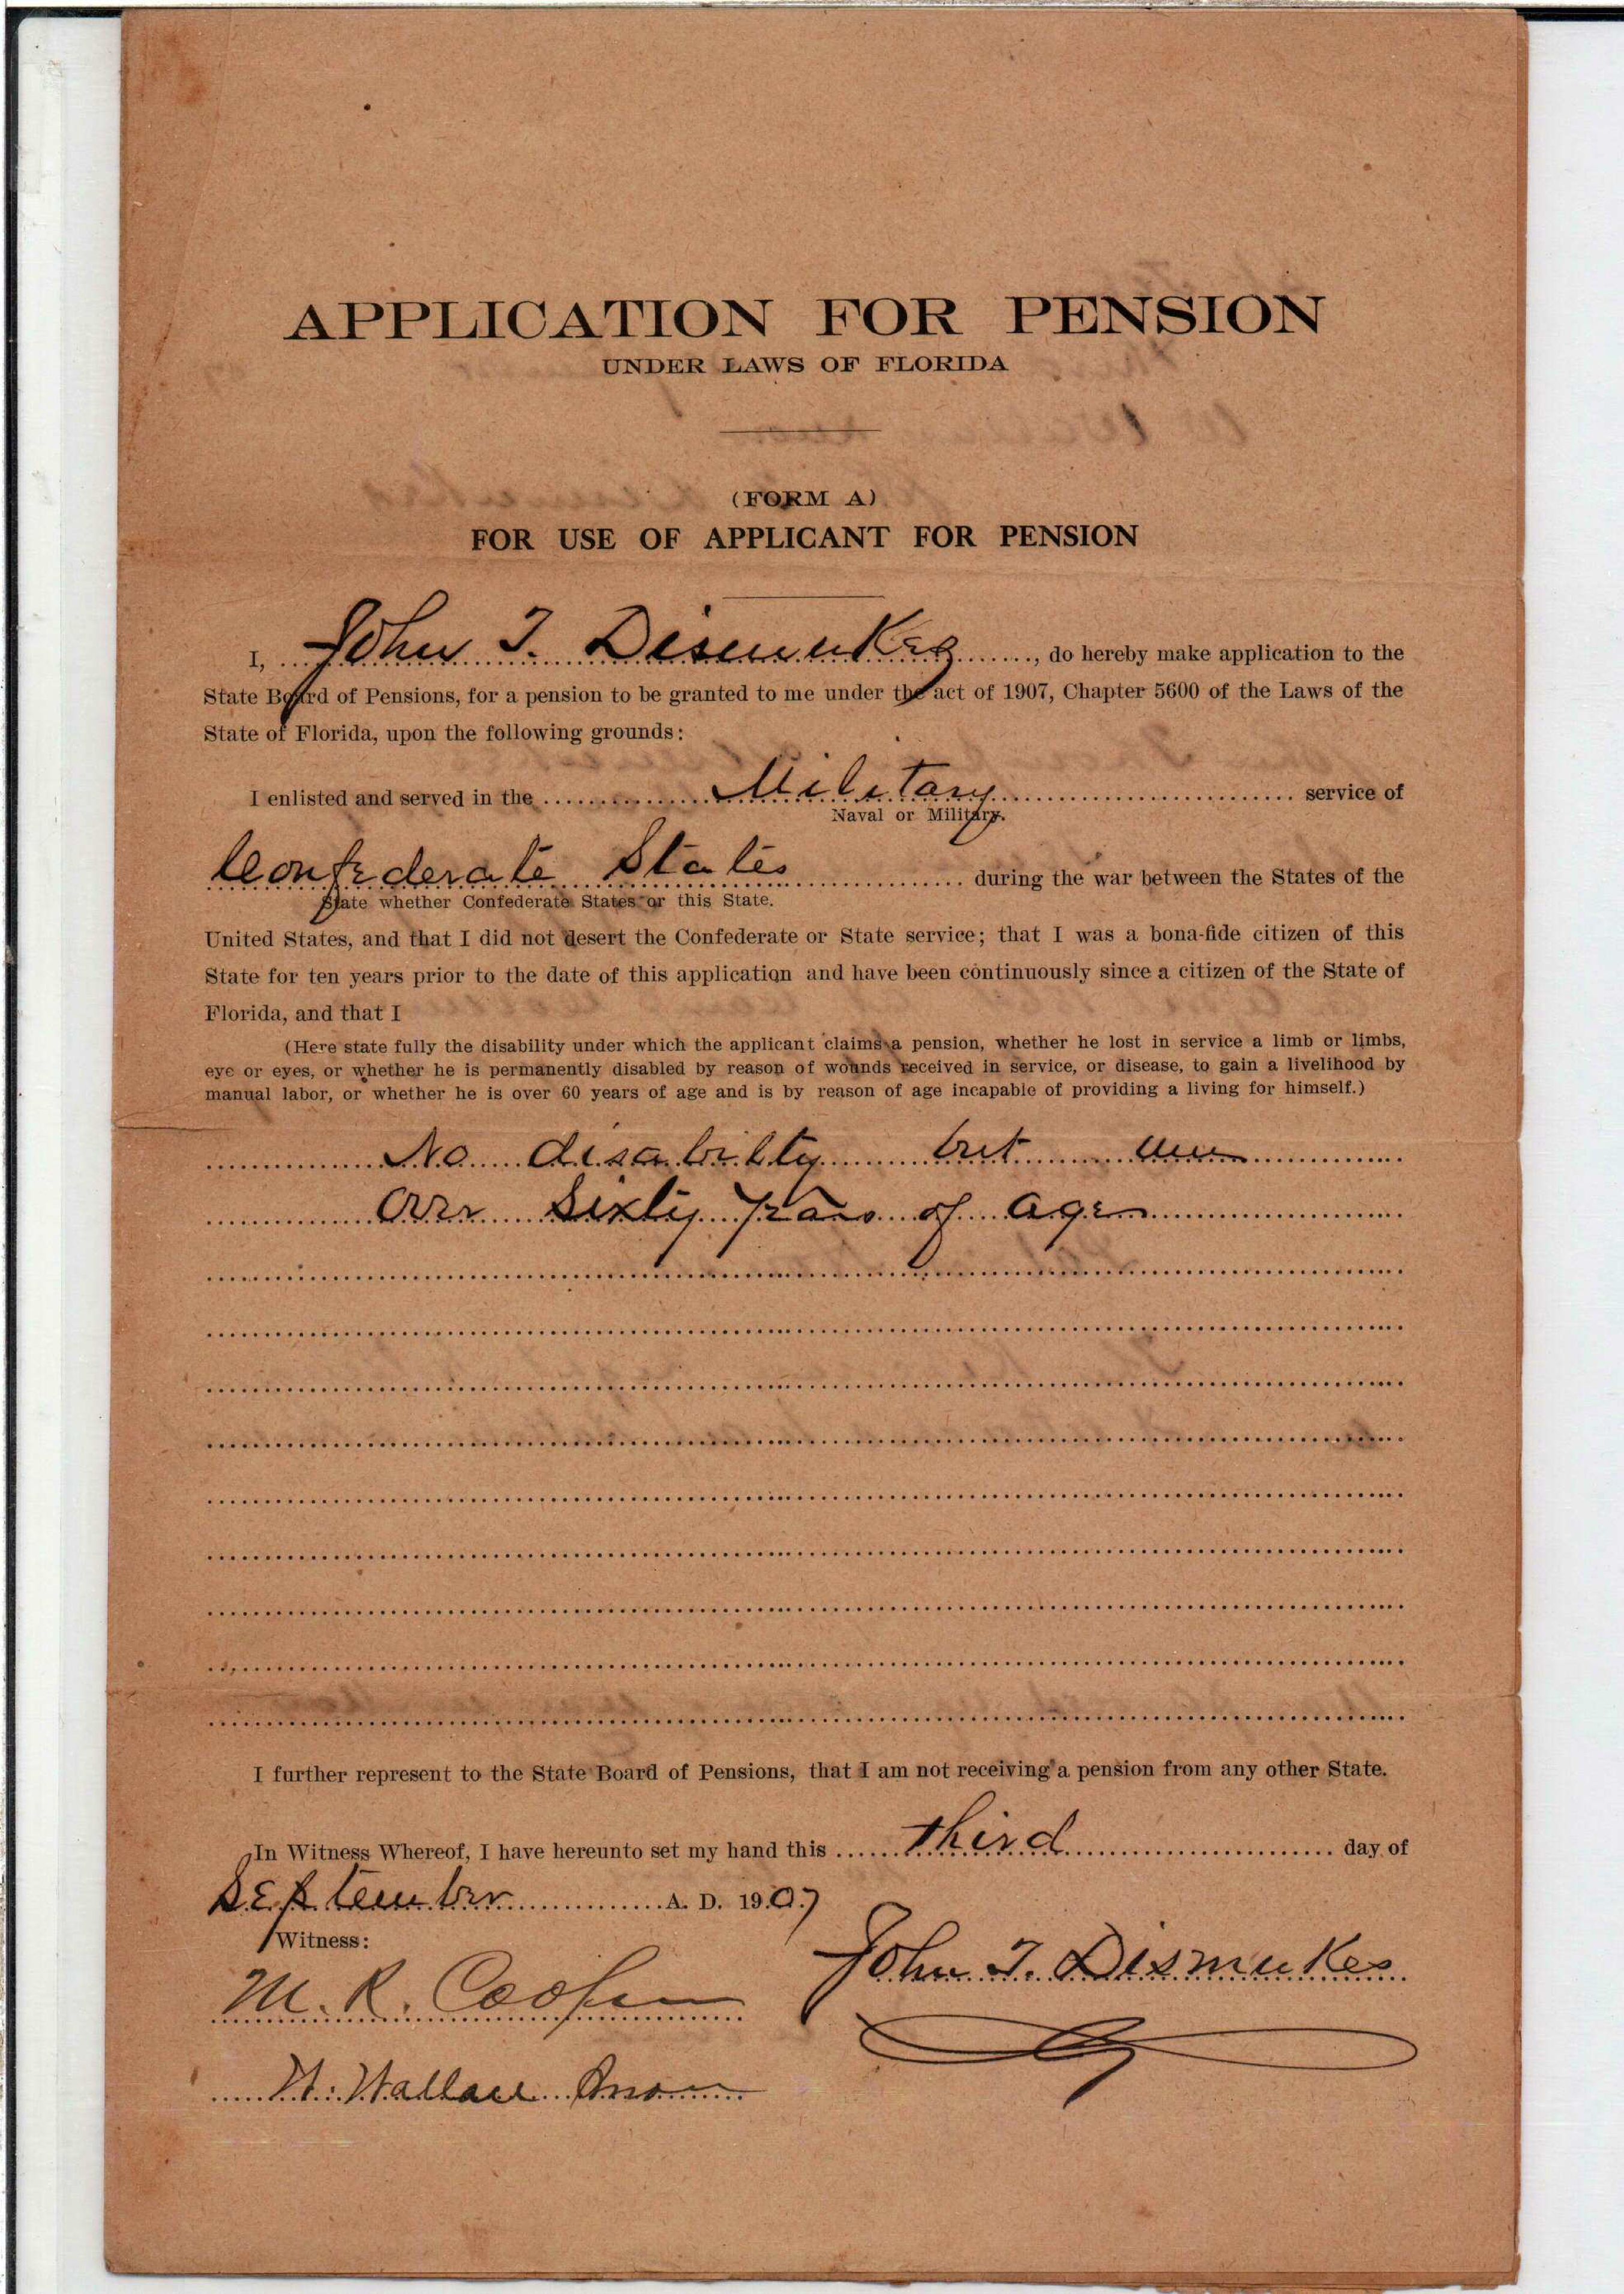 APPLICATION FOR PENSION
UNDER LAWS OF FLORIDA
(FORM A)
FOR USE OF APPLICANT FOR PENSION
I, John T. Dismukes, do hereby make application to the
State Board of Pensions, for a pension to be granted to me under the act of 1907, Chapter 5600 of the Laws of the
State of Florida, upon the following grounds:
I enlisted and served in the Military service of
Naval or Military.
Confederate States during the war between the States of the
State whether Confederate States or this State.
United States, and that I did not desert the Confederate or State service; that I was a bona-fide citizen of this
State for ten years prior to the date of this application and have been continuously since a citizen of the State of
Florida, and that I
(Here state fully the disability under which the applicant claims a pension, whether he lost in service a limb or limbs,
eye or eyes, or whether he is permanently disabled by reason of wounds received in service, or disease, to gain a livelihood by
manual labor, or whether he is over 60 years of age and is by reason of age incapable of providing a living for himself.)
No disability but am
over sixty years of age
I further represent to the State Board of Pensions, that I am not receiving a pension from any other State.
In Witness Whereof, I have hereunto set my hand this third day of
September A. D. 1907
Witness:
John T. Dismukes
M. R. Cooper
W. Wallace